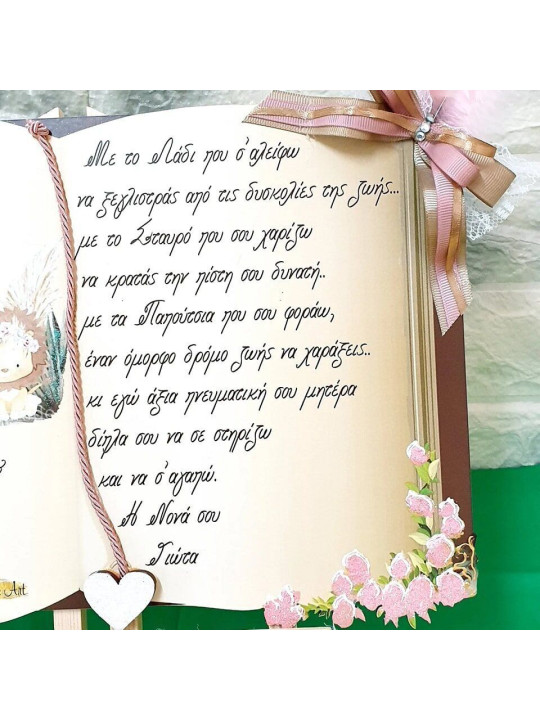 Με το Λάδι που σ' αλείφω
να ξεγλιστράς από τις δυσκολίες της ζωής...
με το Σταυρό που σου χαρίζω
να κρατάς την πίστη σου δυνατή..
με τα Παπούτσια που σου φοράω,
έναν όμορφο δρόμο ζωής να χαράξεις..
κι εγώ άξια πνευματική σου μητέρα
δίπλα σου να σε στηρίζω
και να σ' αγαπώ.
Η Νονά σου
Γιώτα
Art